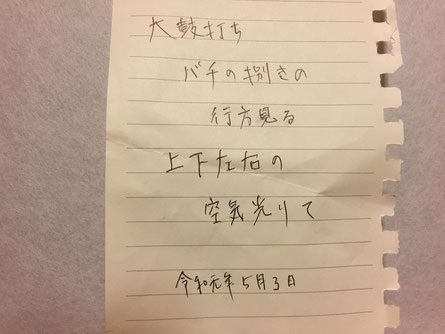 太鼓打ち
バチの捌きの
行方見る
上下左右の
空気光りて
令和元年5月3日